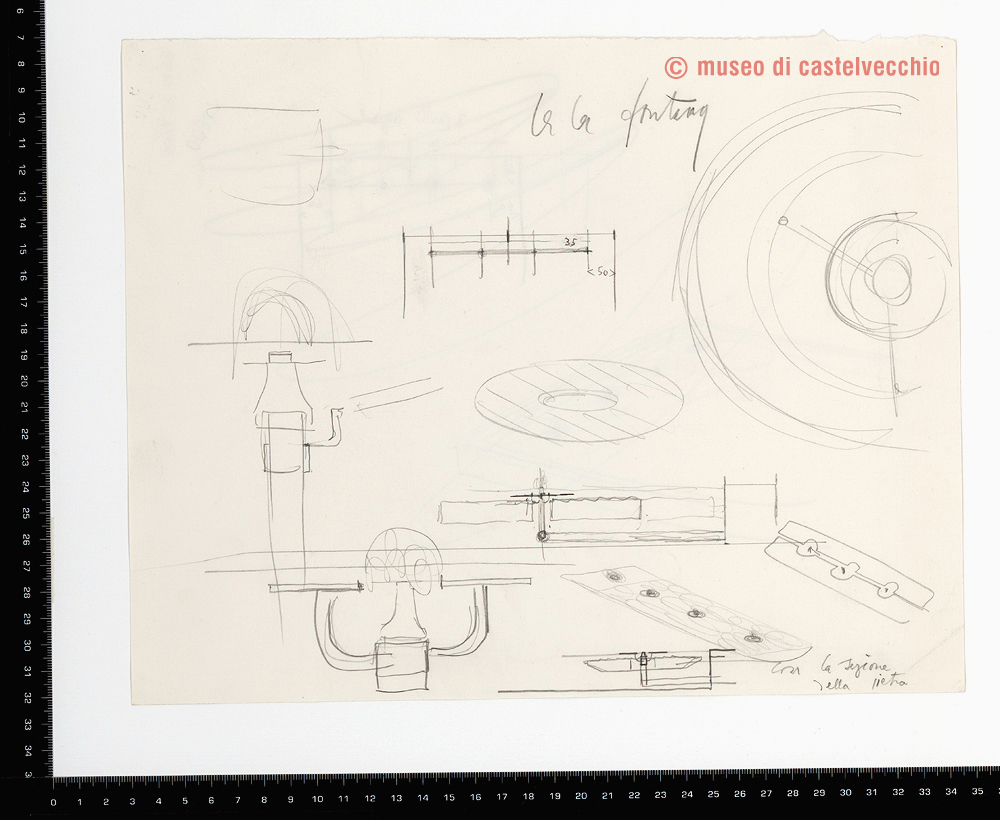 © museo di castelvecchio
la fontana
35
<50>
con la sezione
della pietra
6
7
8
9
10
11
12
13
14
15
16
17
18
19
20
21
22
23
24
25
26
27
28
29
30
31
32
33
34
0 1 2 3 4 5 6 7 8 9 10 11 12 13 14 15 16 17 18 19 20 21 22 23 24 25 26 27 28 29 30 31 32 33 34 35